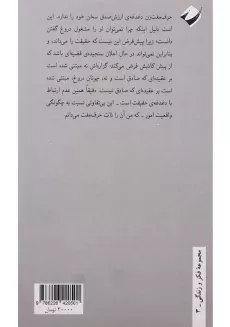 حرف‌مفت‌زن دغدغهٔ ارزش‌صدق سخن خود را ندارد. این
است دلیل اینکه چرا نمی‌توان او را مشغول دروغ گفتن
دانست؛ زیرا پیش‌فرض این نیست که حقیقت را می‌داند، و
بنابراین نمی‌تواند در حال اعلان سنجیدهٔ قضیه‌ای باشد که
از پیش کاذبش فرض می‌کند: گزاره‌اش نه مبتنی شده است
بر عقیده‌ای که صادق است و نه، چونان دروغ، مبتنی شده
بر عقیده‌ای که صادق نیست. دقیقاً همین عدم ارتباط
با دغدغهٔ حقیقت است ـ این بی‌تفاوتی نسبت به چگونگی
واقعیت امور ـ که من آن را ذات حرف‌مفت می‌دانم.
مجموعهٔ فکر و زندگی ـ ۳
9 786226 420501
۲۰۰۰۰ تومان